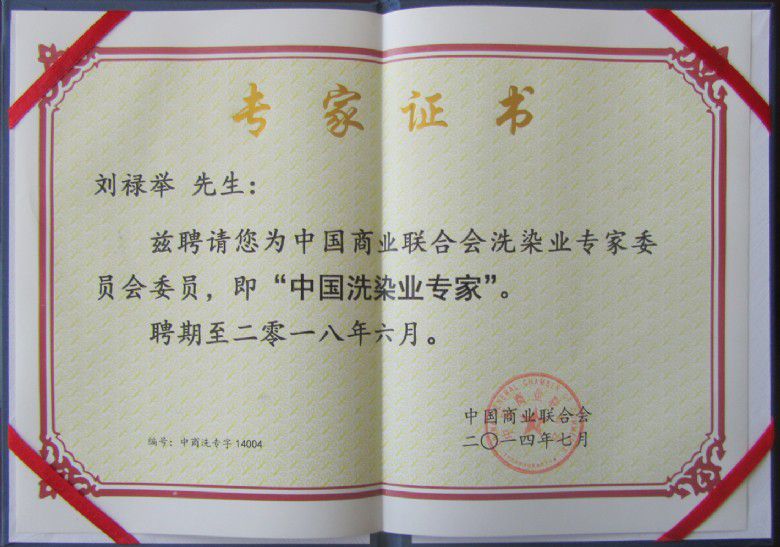 专家证书
刘禄举 先生：
兹聘请您为中国商业联合会洗染业专家委
员会委员，即“中国洗染业专家”。
聘期至二零一八年六月。
中国商业联合会
二〇一四年七月
编号：中商洗专字14004